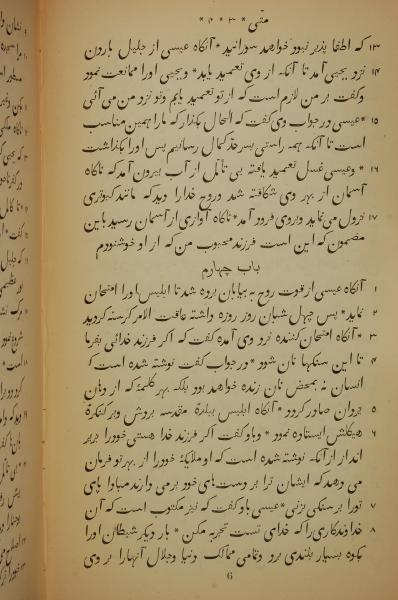 متی * ۳ * ۴ *
۱۳ که اطفا پذیر نبود خواهد سوزانید * آنگاه عیسی از جلیل باردن
۱۴ نزد یحیی آمد تا آنکه از وی تعمید یابد * ویحیی اورا ممانعت نمود
وکفت بر من لازم است که از تو تعمید یابم وتو نزد من می آئی
۱۵ * عیسی در جواب وی کفت که الحال بگذار که مارا همین مناسب
است تا آنکه همه راستی بسر حد کمال رسانیم پس اورا بگذاشت
۱۶ * وعیسی غسل تعمید یافته بی تأمل از آب بیرون آمد که ناگاه
آسمان از بهر وی شکافته شد وروح خدارا دید که مانند کبوتری
۱۷ نزول می نماید وبروی فرود آمد * ناگاه آوازی از آسمان رسید باین
مضمون که این است فرزند محبوب من که از او خوشنودم
باب چهارم
۱ آنگاه عیسی از قوت روح به بیابان برده شد تا ابلیس اورا امتحان
۲ نماید * پس چهل شبان روز روزه داشته عاقبت الامر کرسنه کردید
۳ * آنگاه امتحان کننده نزد وی آمده کفت که اگر فرزند خدائی بفرما
۴ تا این سنگها نان شود * در جواب کفت نوشته شده است که
انسان نه بمحض نان زنده خواهد بود بلکه بهر کلمهٔ که از دهان
۵ یزدان صادر کردد * آنگاه ابلیس ببلدهٔ مقدسه بردش وبر کنکرهٔ
۶ هیکلش ایستاده نمود * وباو کفت اگر فرزند خدا هستی خودرا بزیر
انداز از آنکه نوشته شده است که او ملایکهٔ خودرا از بهر تو فرمان
می دهد که ایشان ترا بر دست های خود بر می دارند مبادا پای
۷ تورا بر سنگی بزنی * عیسی باو کفت که نیز مکتوب است که آن
۸ خداوندکاری را که خدای تست تجربه مکن * بار دیگر شیطان اورا
بکوه بسیار بلندی برد وتمامی ممالک دنیا وجلال آنهارا بر وی
6